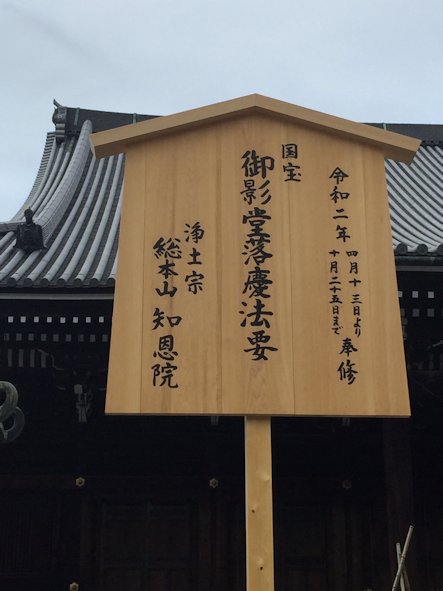 令和二年 四月十三日より
十月二十五日まで 奉修
国宝
御影堂落慶法要
浄土宗
総本山 知恩院